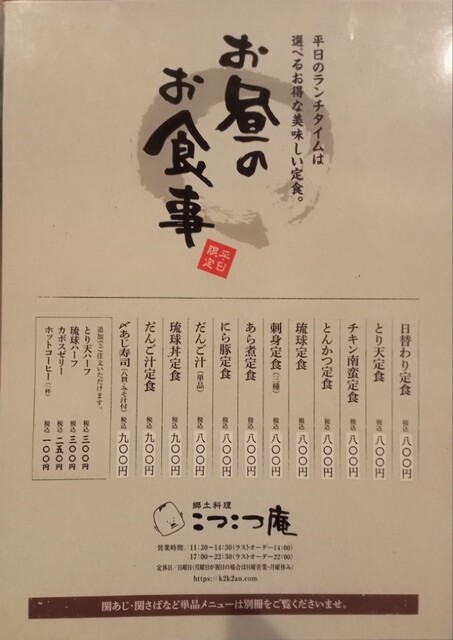 平日のランチタイムは
選べるお得な美味しい定食。
お昼の
お食事
平日
限定
日替わり定食 税込 八〇〇円
とり天定食 税込 八〇〇円
チキン南蛮定食 税込 八〇〇円
とんかつ定食 税込 八〇〇円
琉球定食 税込 八〇〇円
刺身定食(三種) 税込 八〇〇円
あら煮定食 税込 八〇〇円
にら豚定食 税込 八〇〇円
だんご汁(単品) 税込 八〇〇円
琉球丼定食 税込 九〇〇円
だんご汁定食 税込 九〇〇円
〆あじ寿司(八貫・みそ汁付) 税込 九〇〇円
追加でご注文いただけます。
とり天ハーフ 税込 三〇〇円
琉球ハーフ 税込 三〇〇円
カボスゼリー 税込 二五〇円
ホットコーヒー(一杯) 税込 一〇〇円
郷土料理
こつこつ庵
営業時間/11:30〜14:30(ラストオーダー14:00)
17:00〜22:30(ラストオーダー22:00)
定休日/日曜日(月曜日が祝日の場合は日曜営業・月曜休み)
https://k2k2an.com
関あじ・関さばなど単品メニューは別冊をご覧くださいませ。